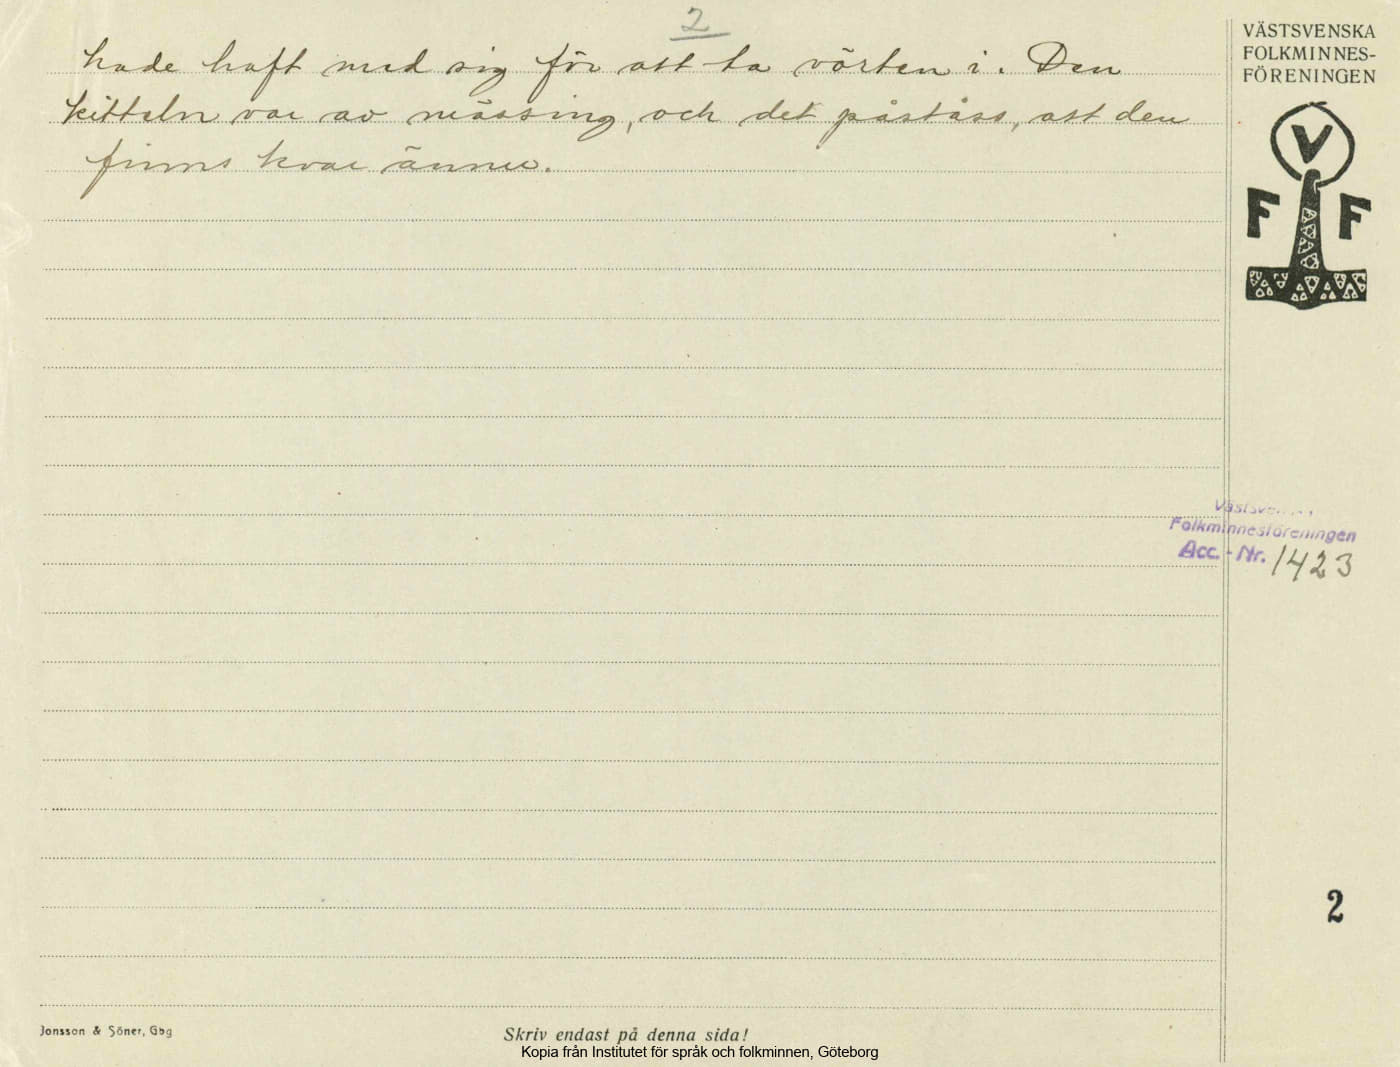 2
hade haft med sig för att ta vörten i. Den
kitteln var av mässing, och det påståss, att den
finns kvar ännu.
VÄSTSVENSKA
FOLKMINNES-
FÖRENINGEN
V
F F
Folkminnesföreningen
Acc.-Nr. 1423
2
Jonsson & Söner, Gbg
Skriv endast på denna sida!
Kopia från Institutet för språk och folkminnen, Göteborg